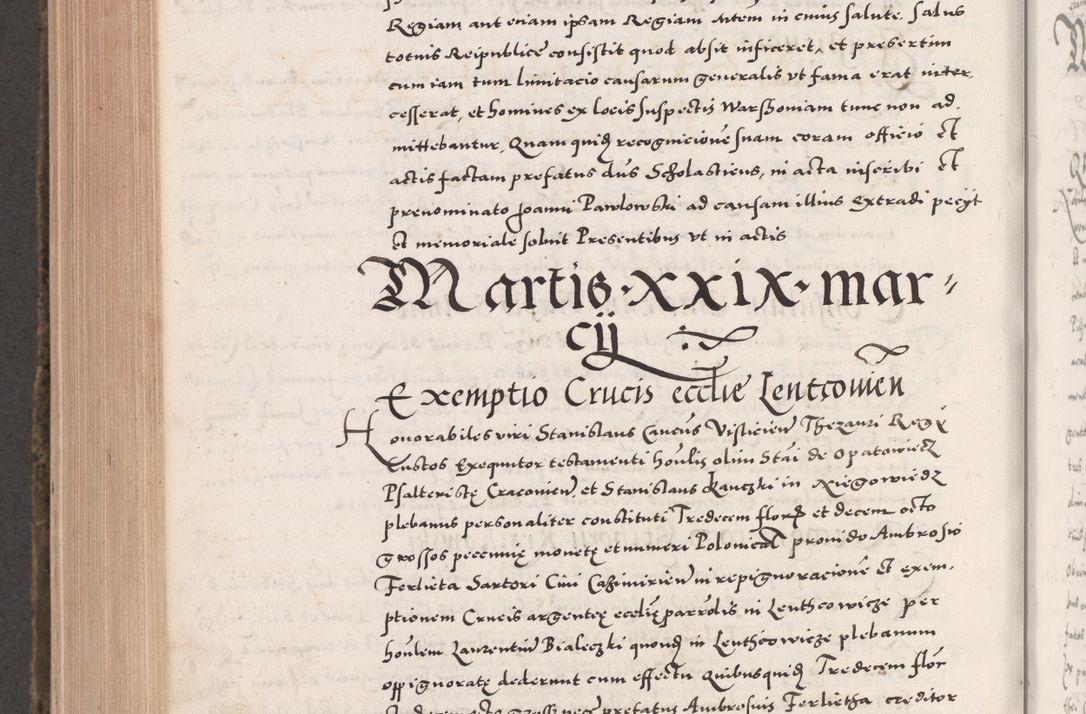 Regiam aut eciam ipsam Regiam Autem in cuius salute. Salus
totius Reipublicę consistit quod absit inficeret, et presertim
cum iam tum limitacio causarum generalis vt fama erat inter,
cesserat, et homines ex locis suspectis Warssoniam tunc non ad,
mittebantur, Quam quidẽ recognicionẽ suam coram officio et
actis factam prefatus dñs Scholasticus, in acta inscribi et
prenominato Joanni Pawlowski ad causam illius Extradi pecijt
et memoriale soluit Presentibus vt in actis
Martis · XXIX · mar =
cij
Exemptio Crucis ecclie Lentcouien
Honorabiles viri Stanislaus Visliciẽn Thezauri Regÿ
Custos Exequutor testamenti hoñlis olim Stãi de opatowiecz
Psalteristę Cracouieñ, et Stanislaus in Xiegowiedz
plebanus personaliter constituti Tredecem florẽ et decem octo
grossos pecunię monetę et numeri Polonicał prouido Ambrosio
Ferlieta Sartori Ciui Casimirieñ in repignoracionẽ et exem,
ptionem Crucis argentęę eccłię parrõlis in Lenthcowicze per
hoñlem Laurentiũ Bialeczki quondã in Lenthcowicze plebanum
oppignoratę dederunt cum effectu Quibusquidẽ Tredecem floŕ
prefatus Ambrosius Ferlietha creditor